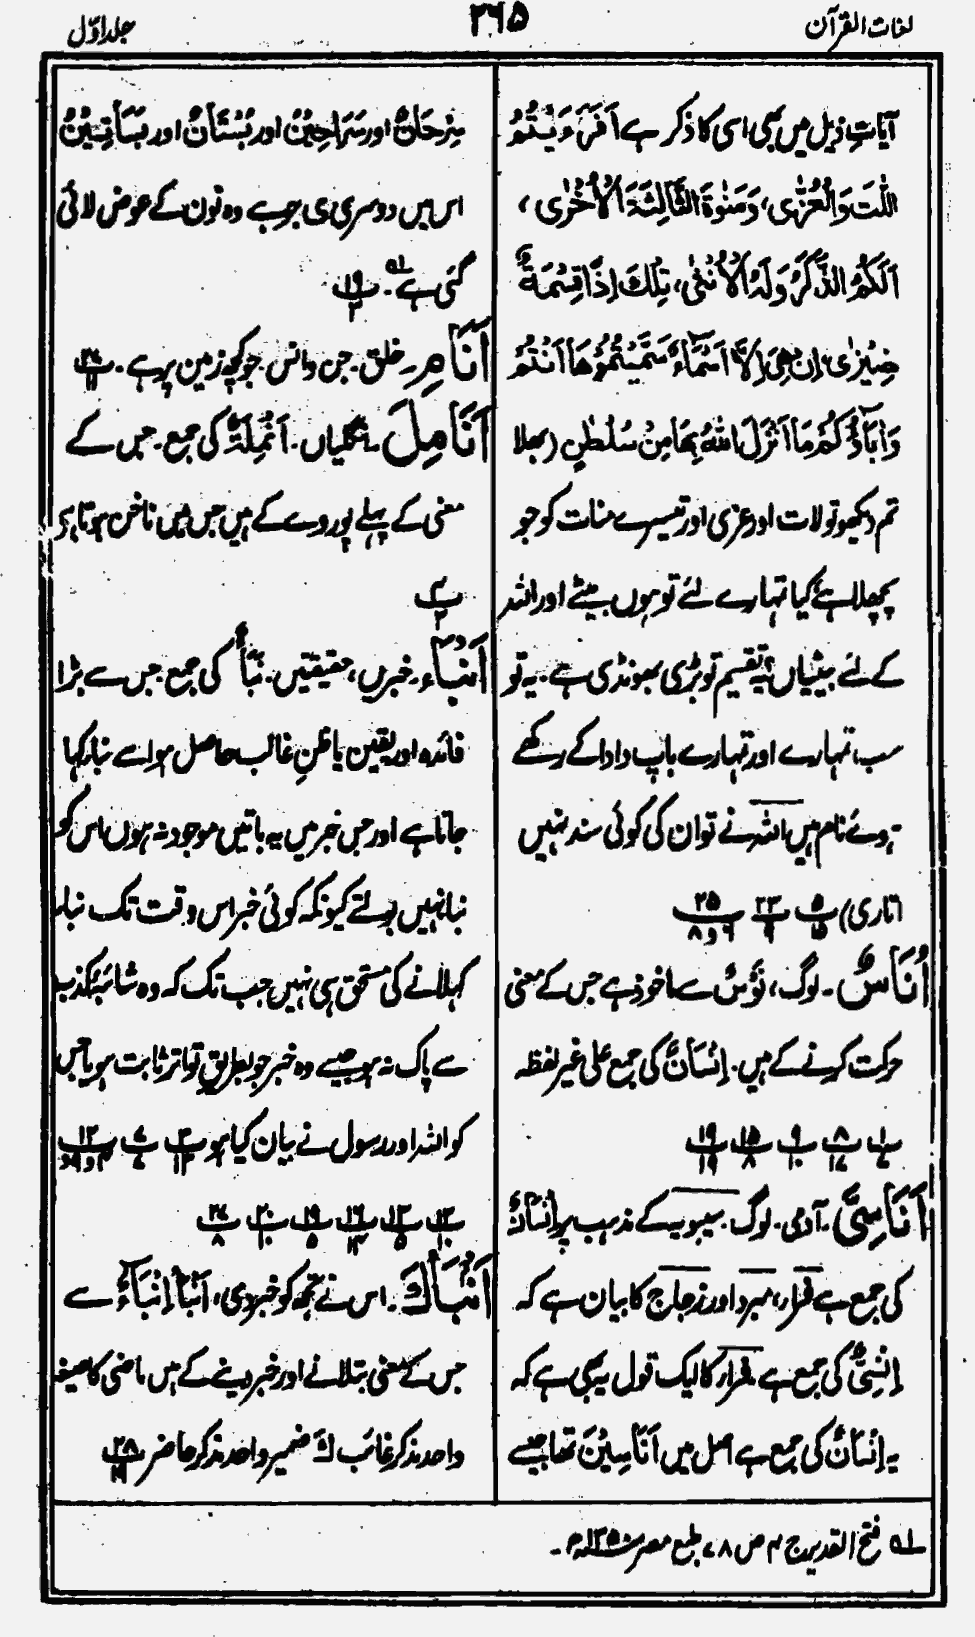 لغات القرآن
۲۶۵
جلد اوّل
آیاتِ ذیل میں بھی اسی کا ذکر ہے اَفَرَءَیْتُمُ
اللّٰتَ وَالْعُزّٰی، وَمَنٰوۃَ الثَّالِثَۃَ الْاُخْرٰی،
اَلَکُمُ الذَّکَرُ وَلَہُ الْاُنْثٰی، تِلْکَ اِذًا قِسْمَۃٌ
ضِیْزٰی، اِنْ ھِیَ اِلَّا اَسْمَآءٌ سَمَّیْتُمُوْھَا اَنْتُمْ
وَاٰبَآؤُکُمْ مَا اَنْزَلَ اللّٰہُ بِھَا مِنْ سُلْطٰنٍ (بھلا
تم دیکھو تو لات اور عزی اور تیسرے منات کو جو
پچھلا ہے کیا تمہارے لئے تو ہوں بیٹے اور اللہ
کے لئے بیٹیاں؟ یہ تقسیم تو بڑی بھونڈی ہے۔ یہ تو
سب تمہارے اور تمہارے باپ دادا کے رکھے
ہوئے نام ہیں اللہ نے تو ان کی کوئی سند نہیں
اتاری) پ۵ ۱۵ پ۲۳ ۹ پ۲۵ ۹ و ۸
اُنَاسٌ۔ لوگ، نَوْسٌ سے ماخوذ ہے جس کے معنی
حرکت کرنے کے ہیں۔ اِنْسَانٌ کی جمع علی غیر لفظہ
پ۱ ۷ پ۸ ۱۷ پ۹ ۱۰ پ۱۵ ۸ پ۱۹ ۱۹
اَنَاسِیَّ۔ آدمی۔ لوگ۔ سیبویہ کے مذہب پر اِنْسَانٌ
کی جمع ہے فرار، مبرد اور زجاج کا بیان ہے کہ
اِنْسِیٌّ کی جمع ہے فرار کا ایک قول یہ بھی ہے کہ
یہ اِنْسَانٌ کی جمع ہے اصل میں اَنَاسِیْنَ تھا جیسے
سِرْحَانٌ اور سَرَاحِیْنُ اور بُسْتَانٌ اور بَسَاتِیْنُ
اس میں دوسری ی جو ہے وہ نون کے عوض لائی
گئی ہے۔ لہ پ۱۹ ۳
اَنَامِ۔ خلق۔ جن و انس۔ جو کچھ زمین پر ہے۔ پ۲۷ ۱۱
اَنَامِلَ۔ انگلیاں۔ اَنْمِلَۃٌ کی جمع۔ جس کے
معنی کے پہلے پوروے کے ہیں جس میں ناخن ہوتا ہے
پ۴ ۳
اَنْبَآء۔ خبریں، حقیقتیں۔ نَبَأٌ کی جمع۔ جس سے بڑا
فائدہ اور یقین یا ظنِ غالب حاصل ہو اسے نبا کہا
جاتا ہے اور جس خبر میں یہ باتیں موجود نہ ہوں اس کو
نبا نہیں بولتے کیونکہ کوئی خبر اس وقت تک نبا
کہلانے کی مستحق ہی نہیں جب تک کہ وہ شائبۂ کذب
سے پاک نہ ہو جیسے وہ خبر جو بطریق تواتر ثابت ہو یا جس
کو اللہ اور رسول نے بیان کیا ہو پ۳ ۱۳ پ۷ ۷ پ۱۲
پ۱۳ ۱۰ پ۱۳ ۵ پ۱۶ ۱۴ پ۱۹ ۵ پ۲۰ ۱۰ پ۲۷ ۸
اَنْبَأَکَ۔ اس نے تجھ کو خبر دی، اَنْبَأَ اِنْبَاءً سے
جس کے معنی بتلانے اور خبر دینے کے ہیں ماضی کا صیغہ
واحد مذکر غائب کَ ضمیر واحد مذکر حاضر پ۲۸ ۱۹
لہ فتح القدیر ج ۴ ص ۷۸، طبع مصر ۱۳۵۰ھ۔